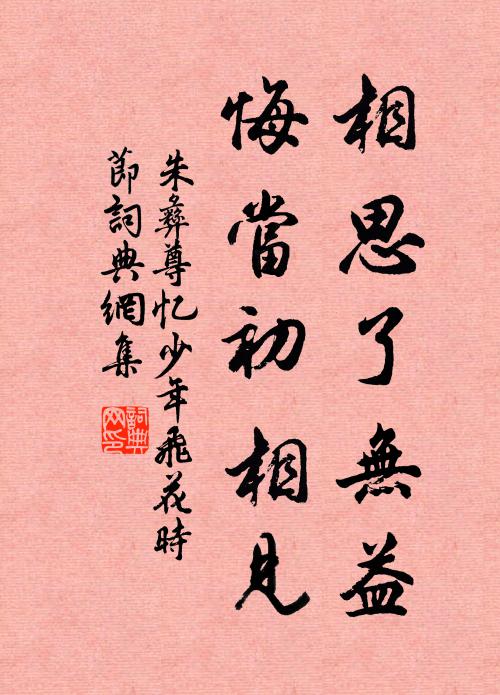 相思了無益
悔當初相見
朱彝尊忆少年飛花時
節詞典網集
詞典网印